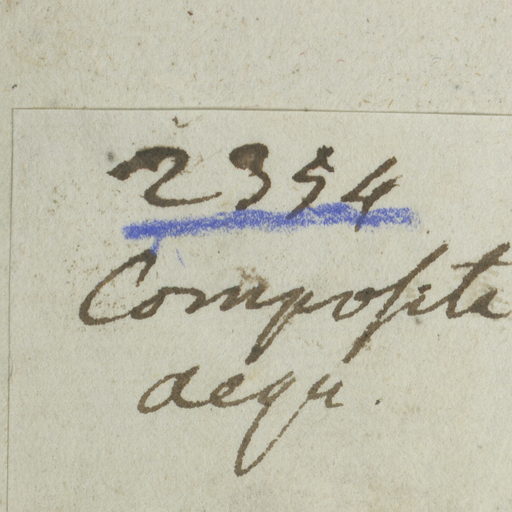 2354
Composita
aequ.